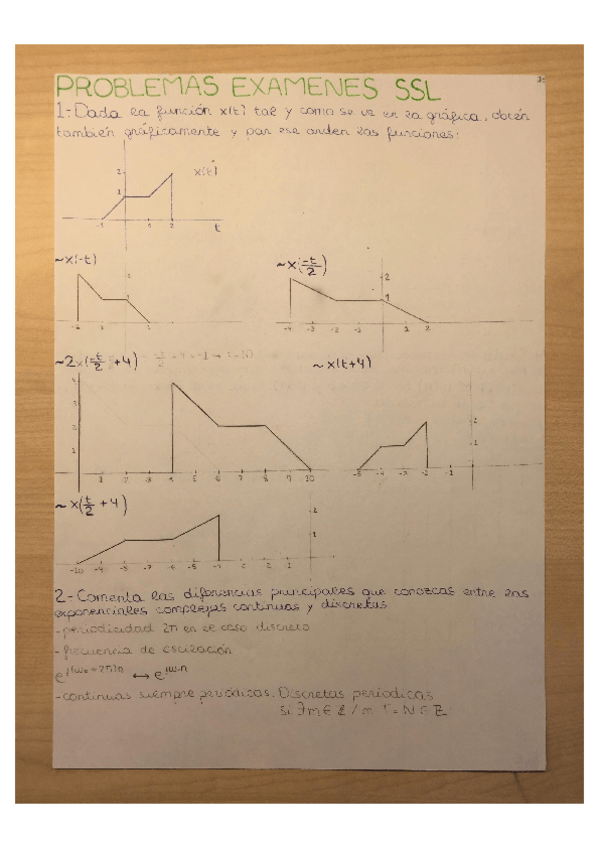 PROBLEMAS EXAMENES SSL
1-Dada la función x(t) tal y como se ve en la gráfica, obtén
también gráficamente y por ese orden las funciones:
x(t)
2
1
-1 1 2 t
~x(-t)
~x(-t/2)
2
1
-4 -3 -2 -1 1 2
~2x(-t/2 +4)
~x(t+4)
4
3
2
1
1 2 3 4 5 6 7 8 9 10
~x(t/2 +4)
2
1
2-Comenta las diferencias principales que conozcas entre las
exponenciales complejas continuas y discretas
-periodicidad 2π en el caso discreto
-frecuencia de oscilación
-continuas siempre periódicas. Discretas periodicas